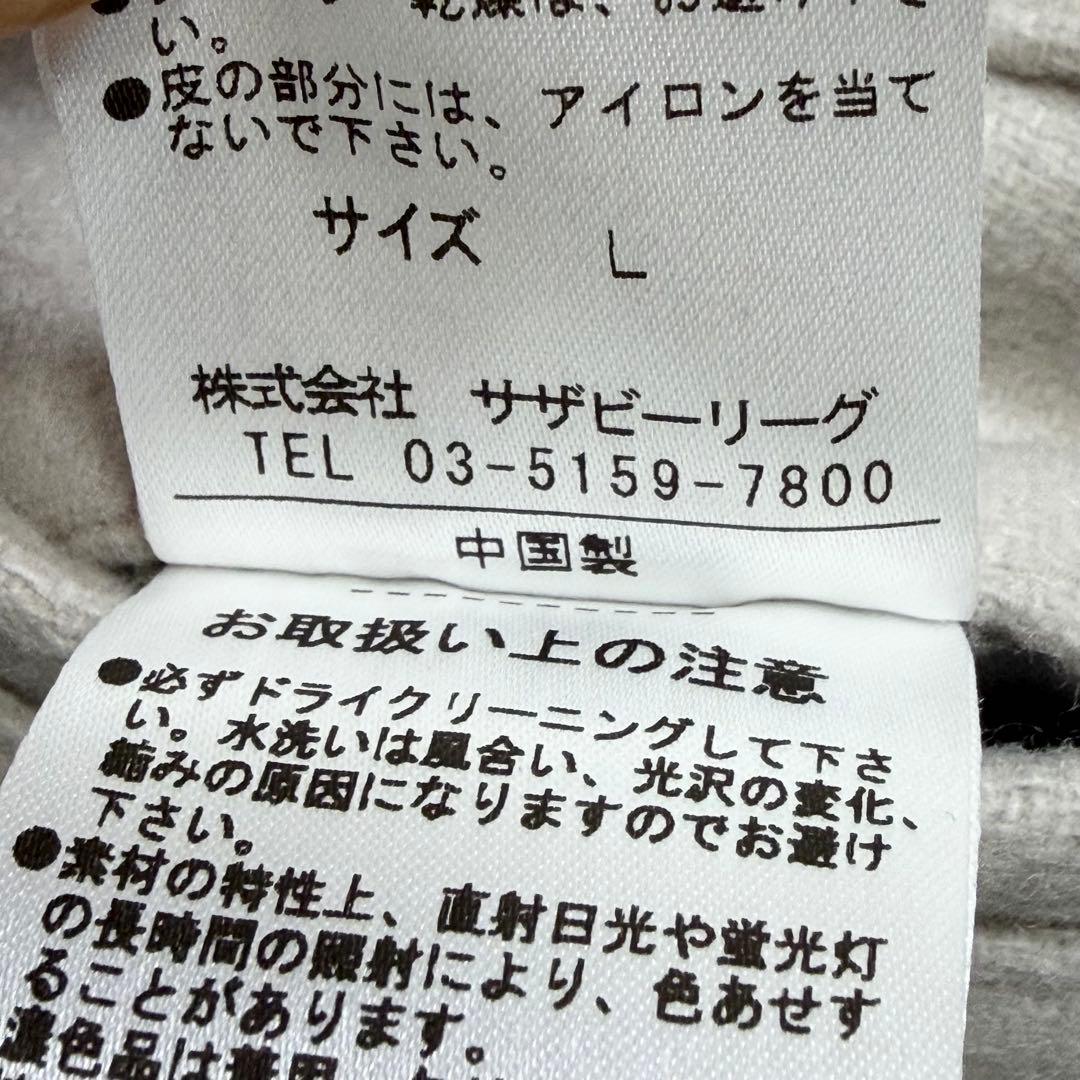 乾燥は、お避け下さ
い。
●皮の部分には、アイロンを当て
ないで下さい。
サイズ L
株式会社 サザビーリーグ
TEL 03-5159-7800
中国製
お取扱い上の注意
●必ずドライクリーニングして下さ
い。水洗いは風合い、光沢の変化、
縮みの原因になりますのでお避け
下さい。
●素材の特性上、直射日光や蛍光灯
の長時間の照射により、色あせす
ることがあります。
濃色品は着用